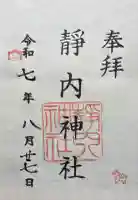 奉拝
靜内神社
令和七年八月廿七日